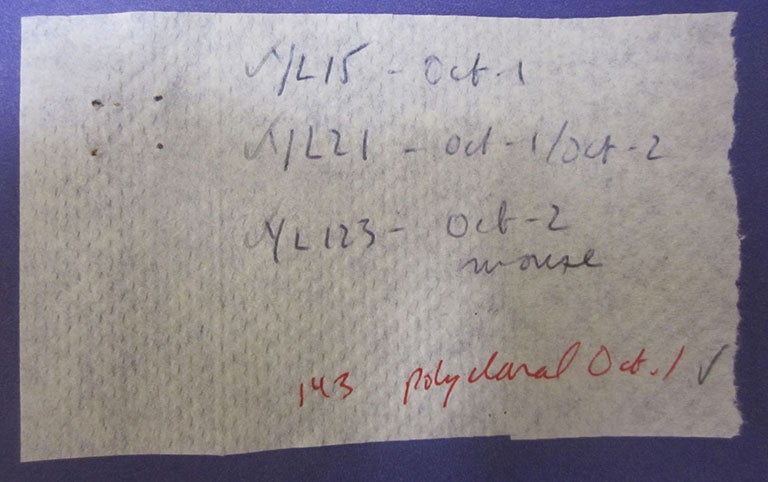 ✓YL15 - Oct-1
✓YL21 - Oct-1/Oct-2
✓YL123 - Oct-2
mouse
143 polyclonal Oct.1 ✓